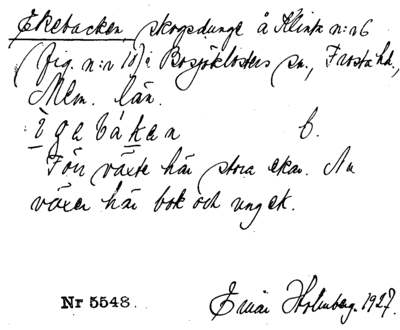 Ekebacken, skogsdunge å Klinta n:r 6
(fig. n:r 10) i Bosjöklosters sn., Frosta hd.,
Mlm. län.
ègabákan b.
Förr växte här stora ekar. Nu
växer här bok och ung ek.
Nr 5548.
Einar Holmberg. 1927.